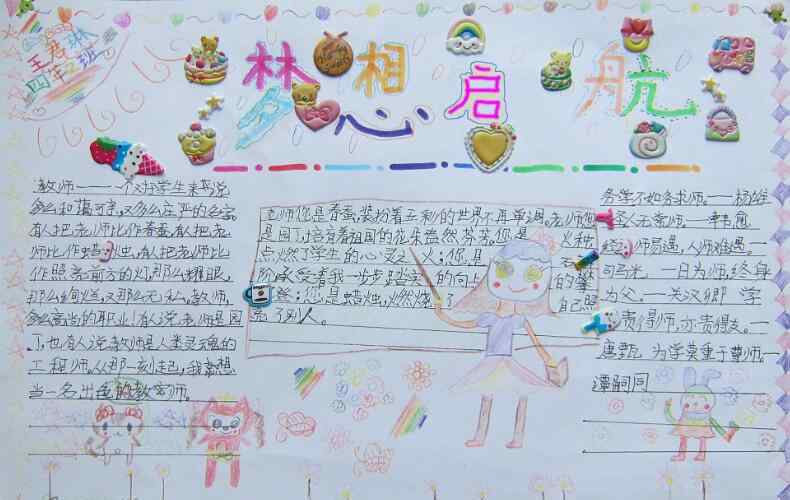 王君琳
四年二班
梦想启航
教师——一个对学生来说
多么和蔼可亲，又多么庄严的名字
有人把老师比作春蚕，有人把老
师比作蜡烛，有人把老师比
作照亮前方的灯，那么耀眼，
那么绚烂，又那么无私，教师，
多么高尚的职业！有人说，老师是园
丁，也有人说教师是人类灵魂的
工程师，从那一刻起，我就想
当一名出色的教育师。
老师您是春蚕，装扮着五彩的世界不再单调，老师您
是园丁，培育着祖国的花朵益然芬芳，您是火种
点燃了学生的心灵之火；您是石
阶，承受着我一步步踏实的向上
您是蜡烛，燃烧了自己照
亮了别人。
务学不如务求师。——杨雄
圣人无常师。——韩愈
经师易遇，人师难遇。—
司马光 一日为师，终身
为父。—关汉卿 学
贵得师，亦贵得友。—
唐甄 为学莫重于尊师。—
谭嗣同